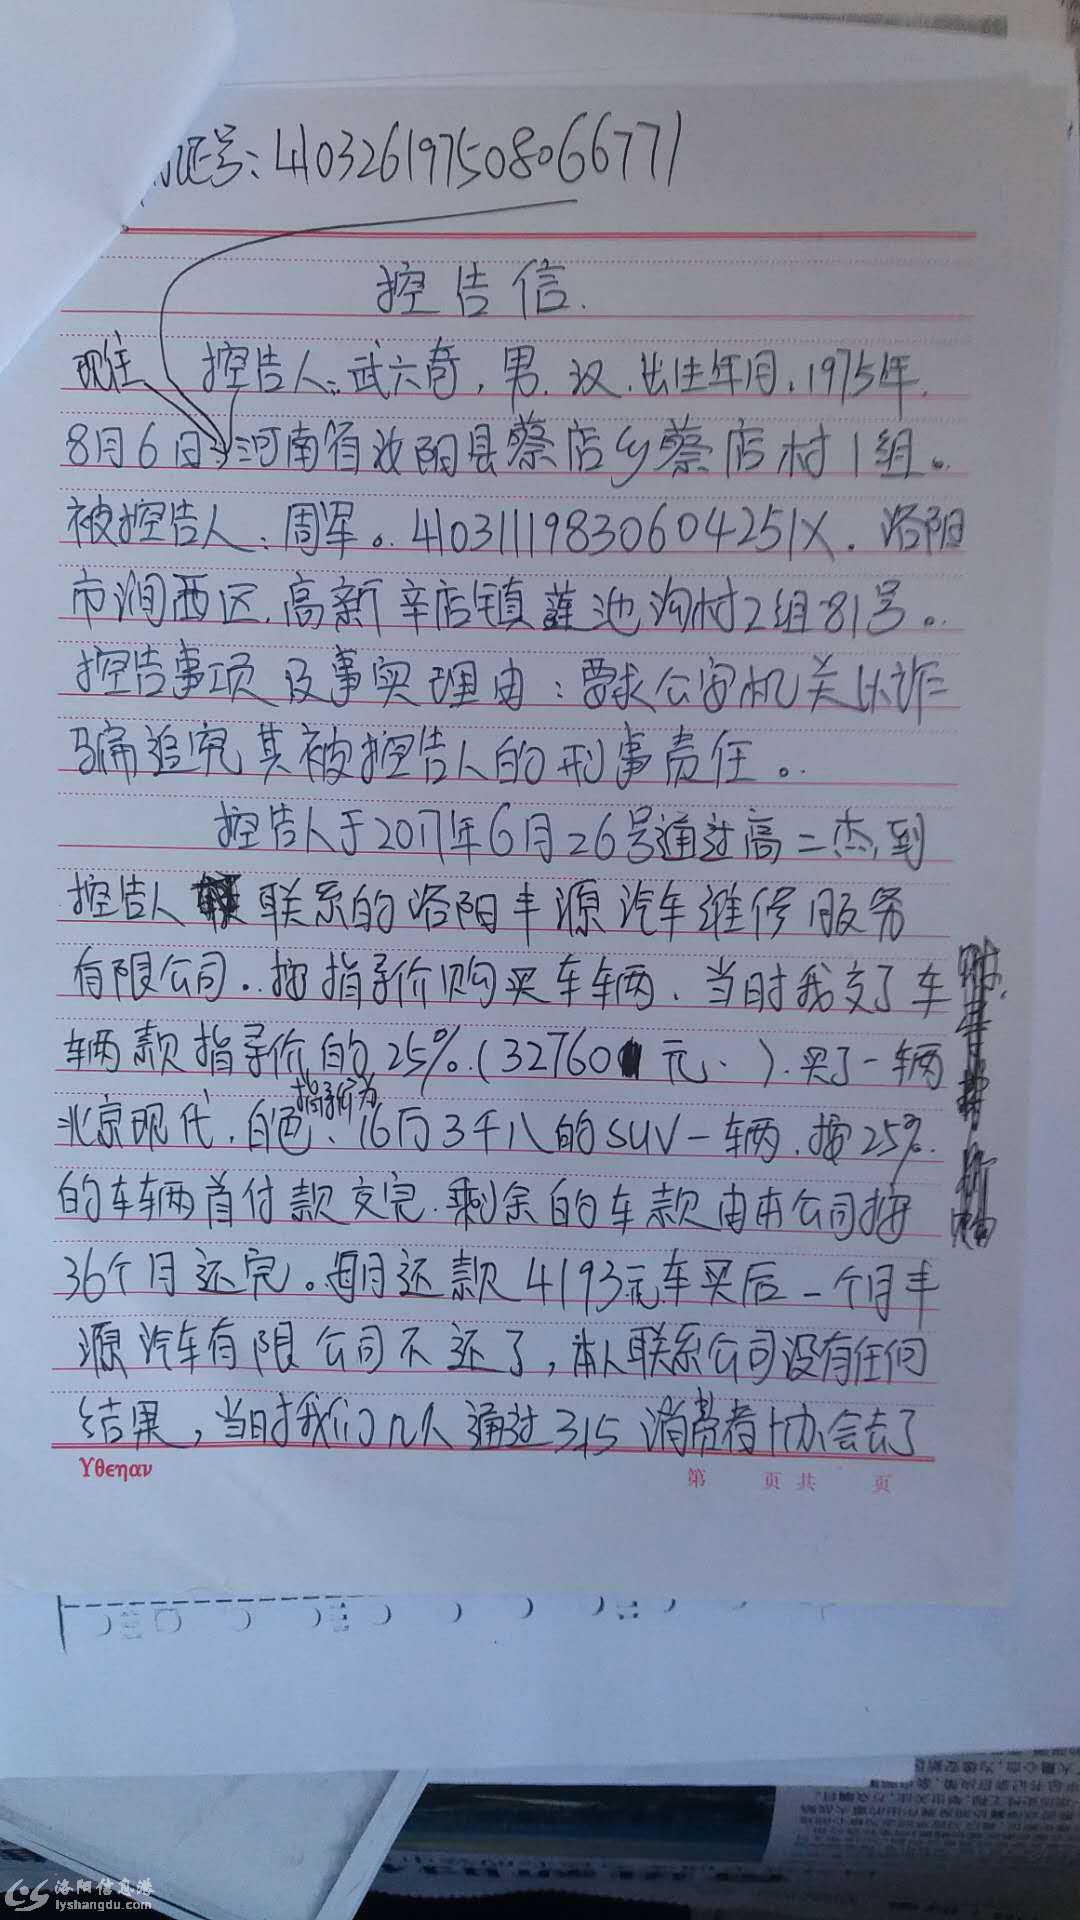 证号:410326197508066771
控告信.
现住 控告人:武六奇,男.汉.出生年月.1975年.
8月6日 河南省汝阳县蔡店乡蔡店村1组。
被控告人:周军。41031119830604251X.洛阳
市涧西区.高新辛店镇莲池沟村2组81号。
控告事项及事实理由:要求公安机关以诈
骗追究其被控告人的刑事责任。
控告人于2017年6月26号通过高二杰,到
控告人 联系的洛阳丰源汽车维修服务
有限公司..按指导价购买车辆.当时我交了车
辆款指导价的25%.(32760元.).买了一辆
指导价为
北京现代.白色.16万3千八的SUV一辆.按25%.
的车辆首付款交完.剩余的车款由本公司按
36个月还完。每月还款4193元车买后一个月丰
源汽车有限公司不还了,本人联系公司没有任何
结果,当时我们几人通过315消费者协会去了
Yθєηαν
第 页 共 页
洛阳信息港
lyshangdu.com